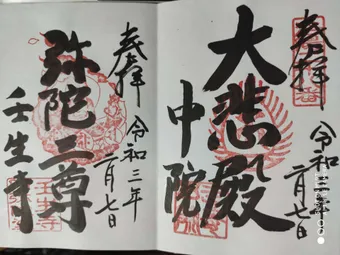 奉拝
令和三年
二月七日
大悲殿
中院
奉拝
令和三年
二月七日
弥陀三尊
壬生寺
壬生寺